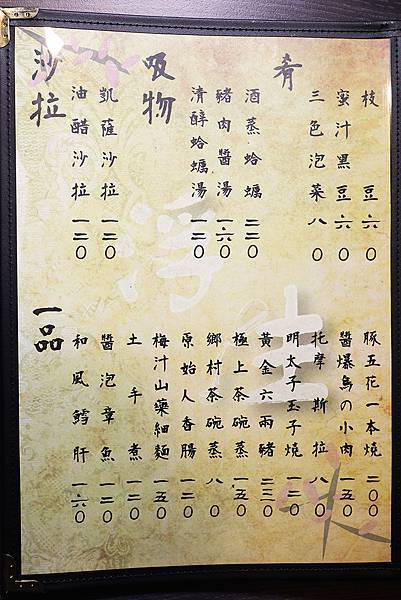 肴
枝豆 六〇
蜜汁黑豆 六〇
三色泡菜 八〇
吸物
酒蒸蛤蠣 二二〇
豬肉醬湯 一六〇
清醇蛤蠣湯 一二〇
沙拉
凱薩沙拉 一二〇
油醋沙拉 一二〇
豚五花一本燒 二〇〇
醬爆鳥の小肉 一五〇
托摩斯拉 八〇
明太子玉子燒 一二〇
黃金六兩豬 二三〇
極上茶碗蒸 一五〇
鄉村茶碗蒸 八〇
原始人香腸 一二〇
梅汁山藥細麵 一五〇
土手煮 一二〇
醬泡章魚 一二〇
和風鱈肝 一六〇
一品